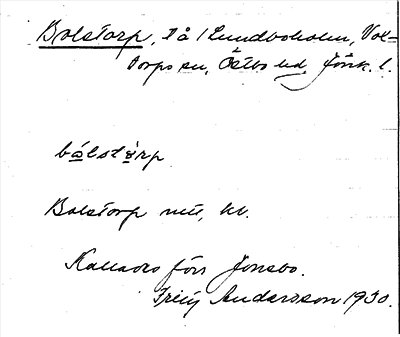 Bolstorp, Då / Lundboholm, Vol=
torps sn, Östbo hd. Jönk. l.
bålstòrp
Bolstorp
Kallades förr Jonsbo.
Andersson 1930.